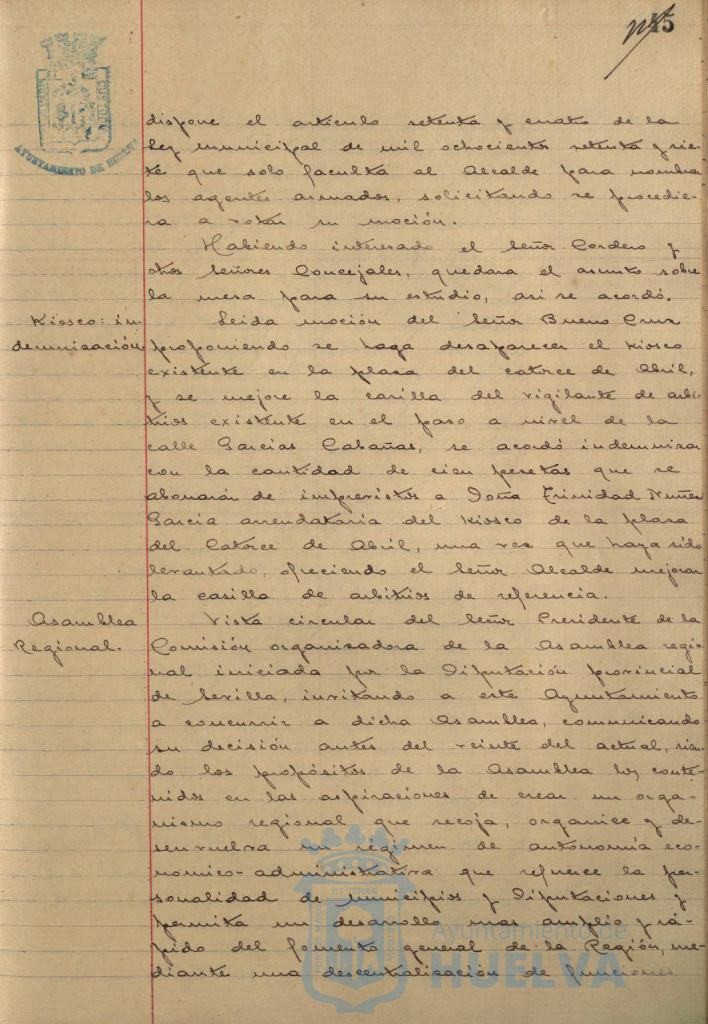 45
AYUNTAMIENTO DE HUELVA
dispone el artículo setenta y cuatro de la
ley municipal de mil ochocientos setenta y sie-
te que solo faculta al Alcalde para nombrar
los agentes armados, solicitando se procedie-
ra a votar su moción.
Habiendo interesado el Señor Cordero y
otros Señores Concejales, quedara el asunto sobre
la mesa para su estudio, asi se acordó.
Kiosco: in-
demnización
Leida moción del Señor Bueno Cruz
proponiendo se haga desaparecer el kiosco
existente en la plaza del catorce de Abril,
y se mejore la casilla del vigilante de arbi-
trios existente en el paso a nivel de la
calle Garcias Cabañas, se acordó indemnizar
con la cantidad de cien pesetas que se
abonarán de imprevistos a Doña Trinidad Nuñez
Garcia arrendataria del kiosco de la plaza
del Catorce de Abril, una vez que haya sido
levantado, ofreciendo el Señor Alcalde mejorar
la casilla de arbitrios de referencia.
Asamblea
Regional.
Vista circular del Señor Presidente de la
Comisión organizadora de la Asamblea regio-
nal iniciada por la Diputación provincial
de Sevilla, invitando a este Ayuntamiento
a concurrir a dicha Asamblea, comunicando
su decisión antes del veinte del actual, sien-
do los propósitos de la Asamblea los conte-
nidos en las aspiraciones de crear un orga-
nismo regional que recoja, organice y de-
senvuelva un régimen de autonomía eco-
nomico-administrativa que refuerce la per-
sonalidad de municipios y Diputaciones y
permita un desarrollo mas amplio y rá-
pido del fomento general de la Región, me-
diante una descentralización de funciones
Ayuntamiento de
HUELVA